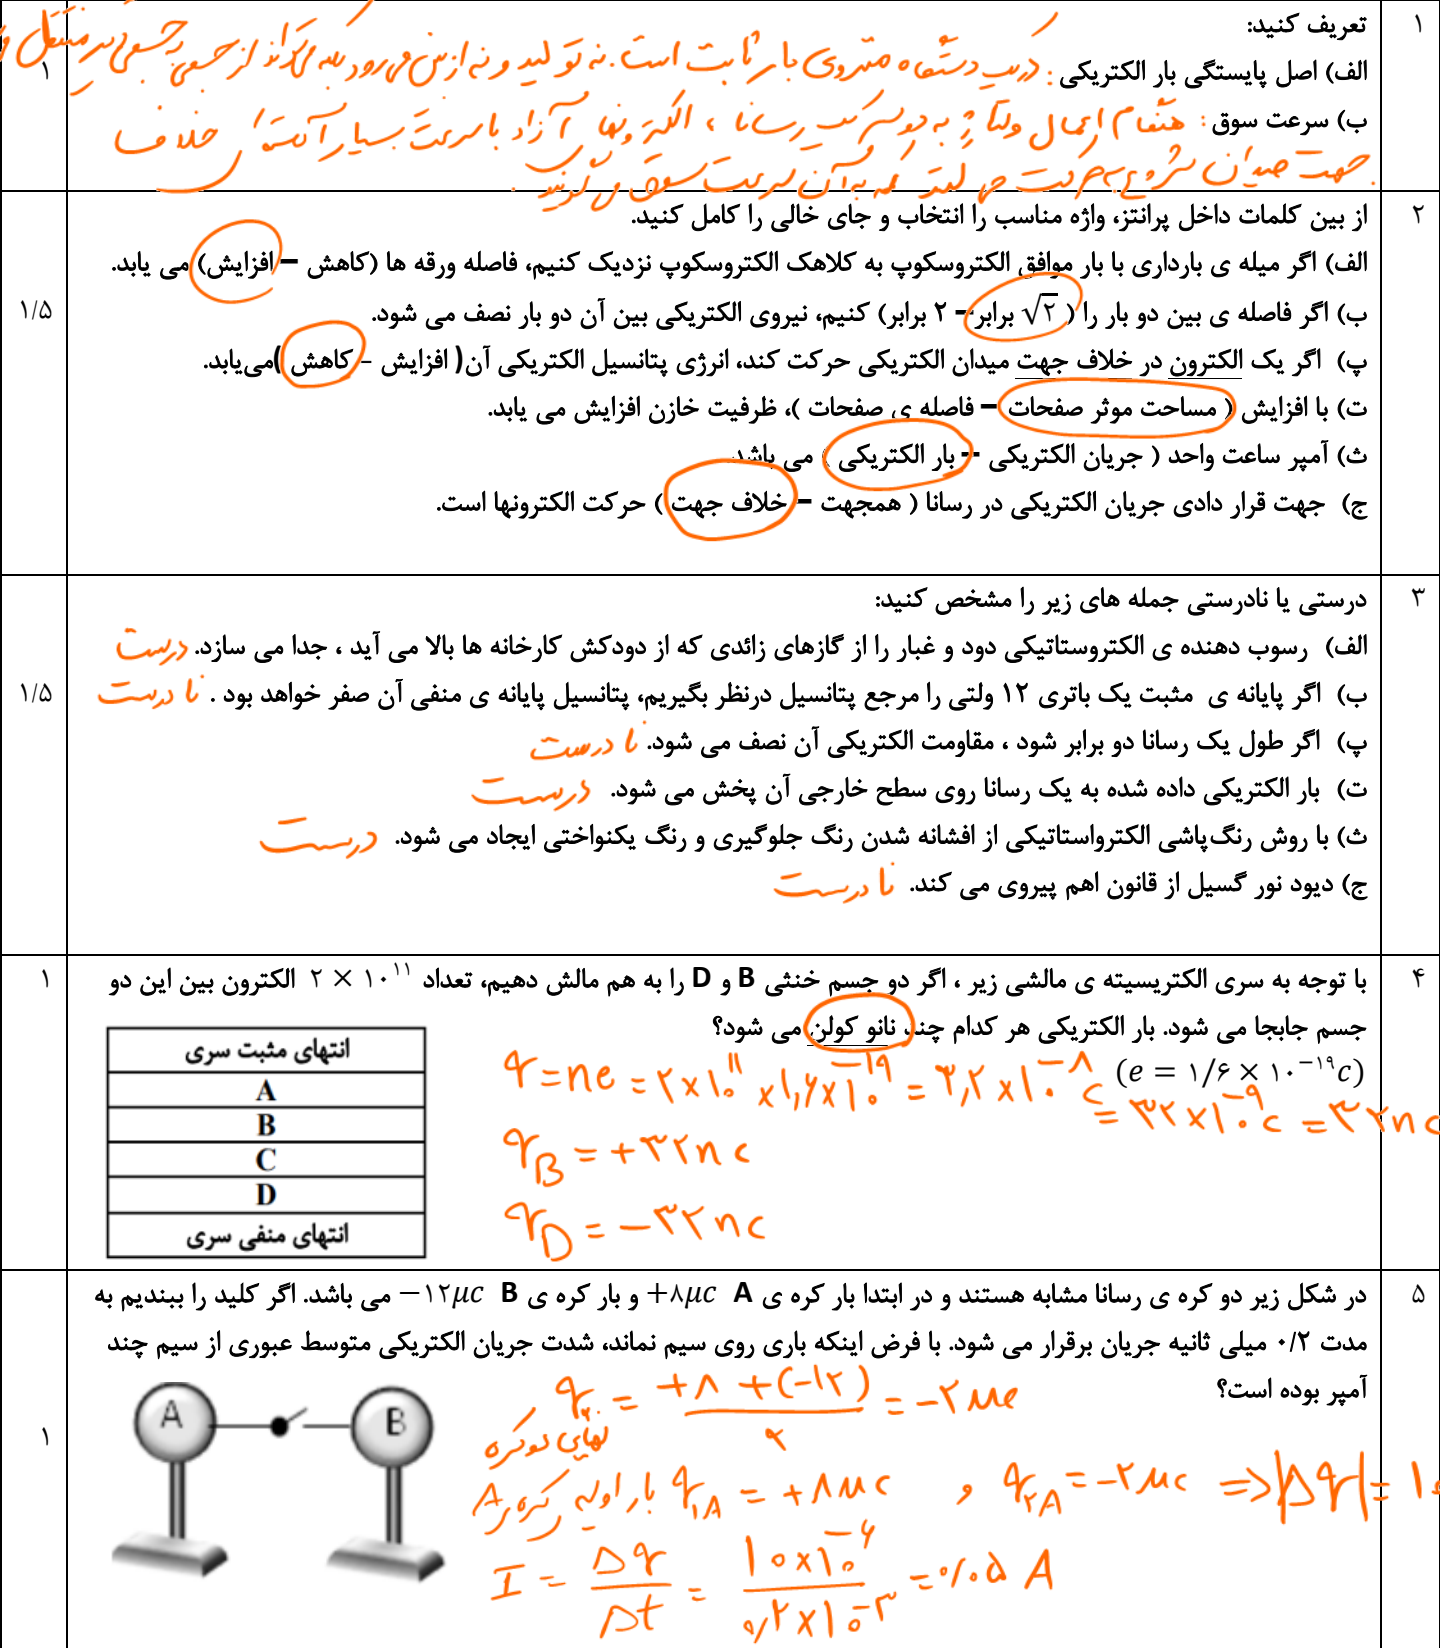 ۱
تعریف کنید:
الف) اصل پایستگی بار الکتریکی : در یک دستگاه منزوی بار ثابت است. نه تولید و نه از بین می رود بلکه می تواند از جسمی به جسمی دیگر منتقل
۱
ب) سرعت سوق : هنگام اعمال ولتاژ به دو سر یک رسانا ، الکترونهای آزاد با سرعت بسیار آهسته ای خلاف
جهت میدان شروع به حرکت می کنند که به آن سرعت سوق می گویند .
۲
از بین کلمات داخل پرانتز، واژه مناسب را انتخاب و جای خالی را کامل کنید.
الف) اگر میله ی بارداری با بار موافق الکتروسکوپ به کلاهک الکتروسکوپ نزدیک کنیم، فاصله ورقه ها (کاهش – افزایش) می یابد.
۱/۵
ب) اگر فاصله ی بین دو بار را ( √۲ برابر – ۲ برابر) کنیم، نیروی الکتریکی بین آن دو بار نصف می شود.
پ) اگر یک الکترون در خلاف جهت میدان الکتریکی حرکت کند، انرژی پتانسیل الکتریکی آن( افزایش – کاهش )می‌یابد.
ت) با افزایش ( مساحت موثر صفحات – فاصله ی صفحات )، ظرفیت خازن افزایش می یابد.
ث) آمپر ساعت واحد ( جریان الکتریکی – بار الکتریکی ) می باشد.
ج) جهت قرار دادی جریان الکتریکی در رسانا ( همجهت – خلاف جهت ) حرکت الکترونها است.
۳
درستی یا نادرستی جمله های زیر را مشخص کنید:
الف) رسوب دهنده ی الکتروستاتیکی دود و غبار را از گازهای زائدی که از دودکش کارخانه ها بالا می آید ، جدا می سازد. درست
۱/۵
ب) اگر پایانه ی مثبت یک باتری ۱۲ ولتی را مرجع پتانسیل درنظر بگیریم، پتانسیل پایانه ی منفی آن صفر خواهد بود . نادرست
پ) اگر طول یک رسانا دو برابر شود ، مقاومت الکتریکی آن نصف می شود. نادرست
ت) بار الکتریکی داده شده به یک رسانا روی سطح خارجی آن پخش می شود. درست
ث) با روش رنگ‌پاشی الکترواستاتیکی از افشانه شدن رنگ جلوگیری و رنگ یکنواختی ایجاد می شود. درست
ج) دیود نور گسیل از قانون اهم پیروی می کند. نادرست
۴
با توجه به سری الکتریسیته ی مالشی زیر ، اگر دو جسم خنثی B و D را به هم مالش دهیم، تعداد ۲ × ۱۰^۱۱ الکترون بین این دو
۱
جسم جابجا می شود. بار الکتریکی هر کدام چند نانو کولن می شود؟
(e = ۱/۶ × ۱۰^−۱۹c)
q = ne = ۲×۱۰^۱۱ × ۱,۶×۱۰^−۱۹ = ۳,۲×۱۰^−۸ c
= ۳۲×۱۰^−۹ c = ۳۲nc
q_B = +۳۲nc
q_D = −۳۲nc
انتهای مثبت سری
A
B
C
D
انتهای منفی سری
۵
در شکل زیر دو کره ی رسانا مشابه هستند و در ابتدا بار کره ی A +۸μc و بار کره ی B −۱۲μc می باشد. اگر کلید را ببندیم به
مدت ۰/۲ میلی ثانیه جریان برقرار می شود. با فرض اینکه باری روی سیم نماند، شدت جریان الکتریکی متوسط عبوری از سیم چند
آمپر بوده است؟
۱
A
B
q_۲ = (+۸ + (−۱۲))/۲ = −۲μc
نهایی دو کره
بار اولیه کره A q_۱A = +۸μc و q_۲A = −۲μc ⇒ |Δq| = ۱۰
I = Δq/Δt = ۱۰×۱۰^−۶ / ۰,۲×۱۰^−۳ = ۰/۰۵ A